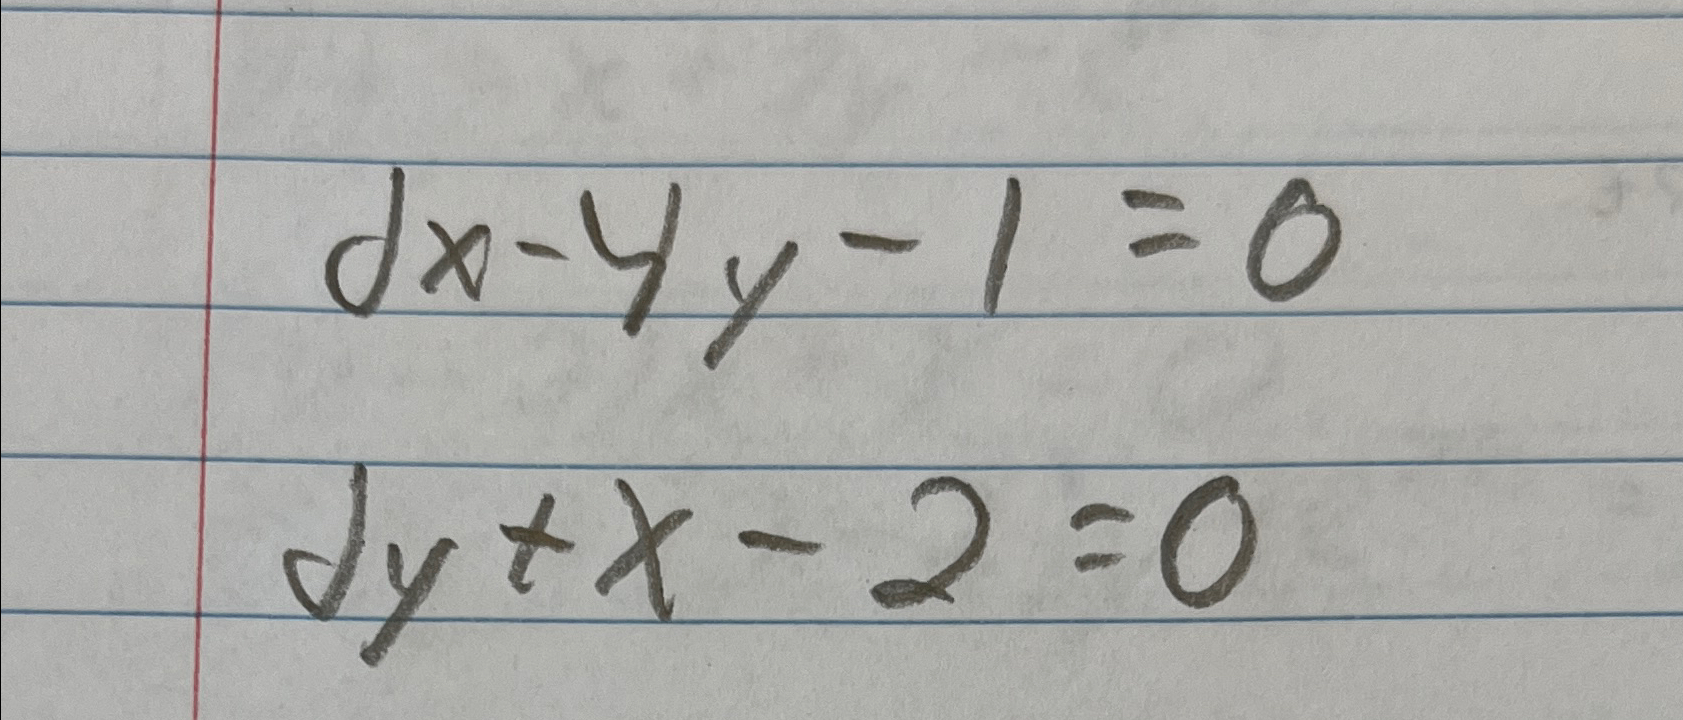 dx - 4y - 1 = 0
dy + x - 2 = 0